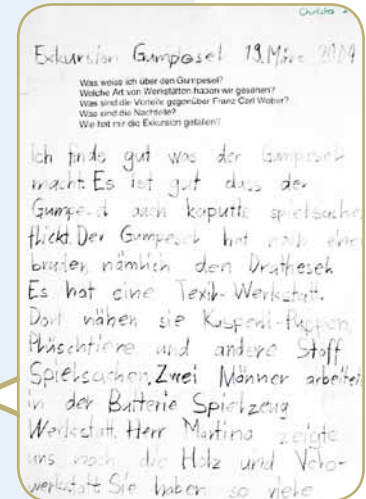 Exkursion Gumpesel 19. März 2004
Was weiss ich über den Gumpesel?
Welche Art von Werkstätten haben wir gesehen?
Was sind die Vorteile gegenüber Franz Carl Weber?
Was sind die Nachteile?
Wie hat mir die Exkursion gefallen?
Ich finde gut was der Gumpesel
macht. Es ist gut dass der
Gumpesel auch kaputte spielsachen
flickt. Der Gumpesel hat noch einen
bruder, nämlich den Drathesel.
Es hat eine Texil-Werkstatt.
Dort nähen sie Kasperli-Puppen,
Plüschtiere und andere Stoff
Spielsachen. Zwei Männer arbeiten
in der Batterie Spielzeug
Werkstatt. Herr Martino zeigte
uns noch die Holz und Velo-
werkstatt. Sie haben so viele